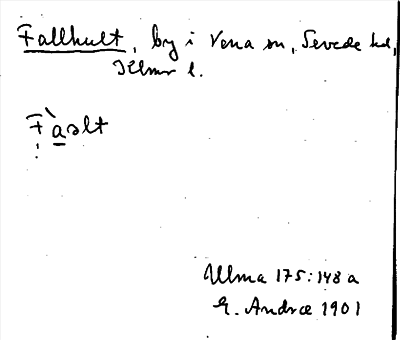 Fallhult, by i Vena sn, Sevede hd,
Klmr l.
Fàalt
Ulma 175:148 a
E. Andræ 1901